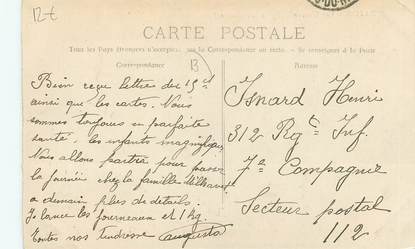 12€
CARTE POSTALE
Tous les Pays étrangers n'acceptent pas la Correspondance au recto. - Se renseigner à la Poste
Correspondance
Adresse
B
Bien reçu lettre du 15 ct
ainsi que les cartes. Nous
sommes toujours en parfaite
santé, les enfants magnifiques
Nous allons partir pour passer
la journée chez la famille
a demain plus de détails.
Je lance les journeaux et 1 kg.
toutes nos tendresse Augusta
Isnard Henri
312 Rgt Inf.
7e Compagnie
Secteur postal
112